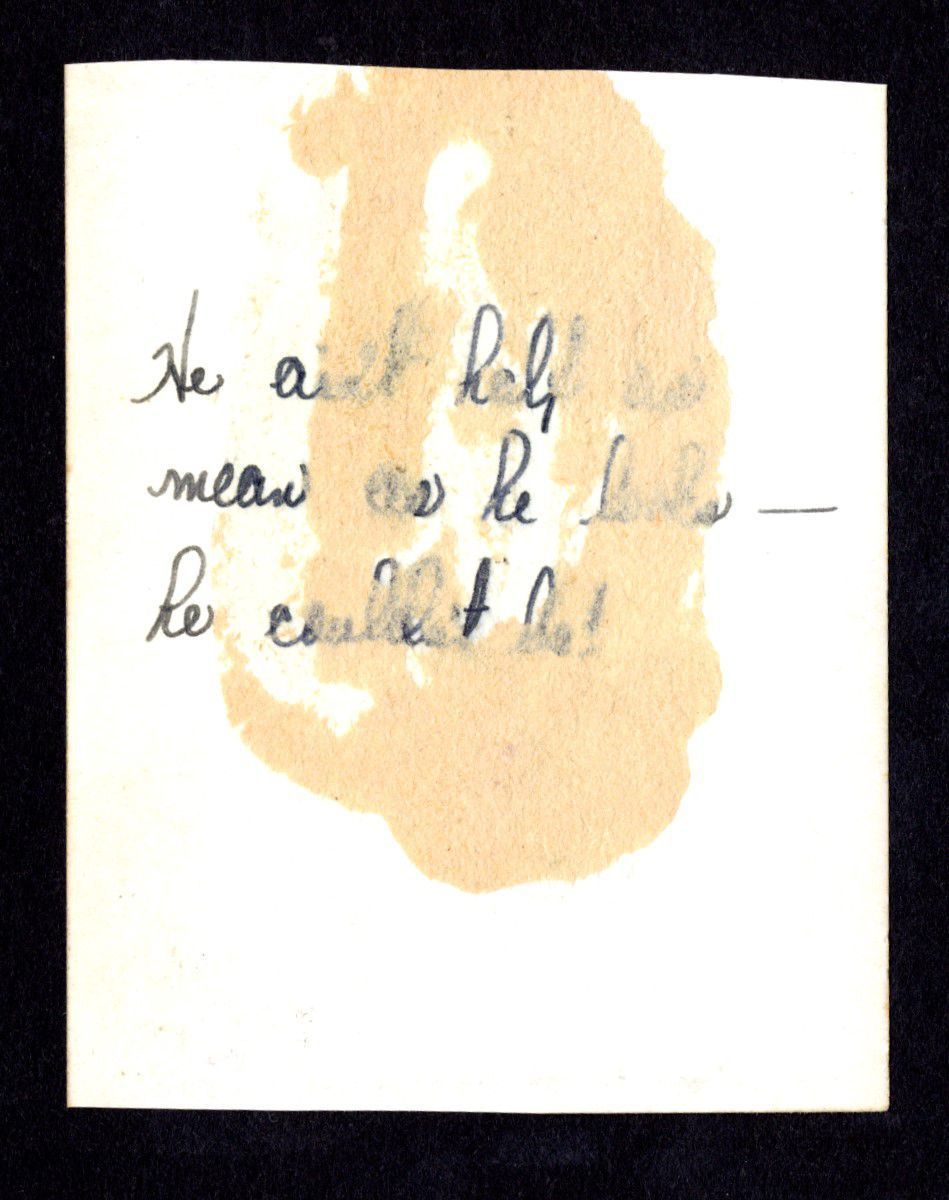 He ain't half as
mean as he looks —
he couldn't be!